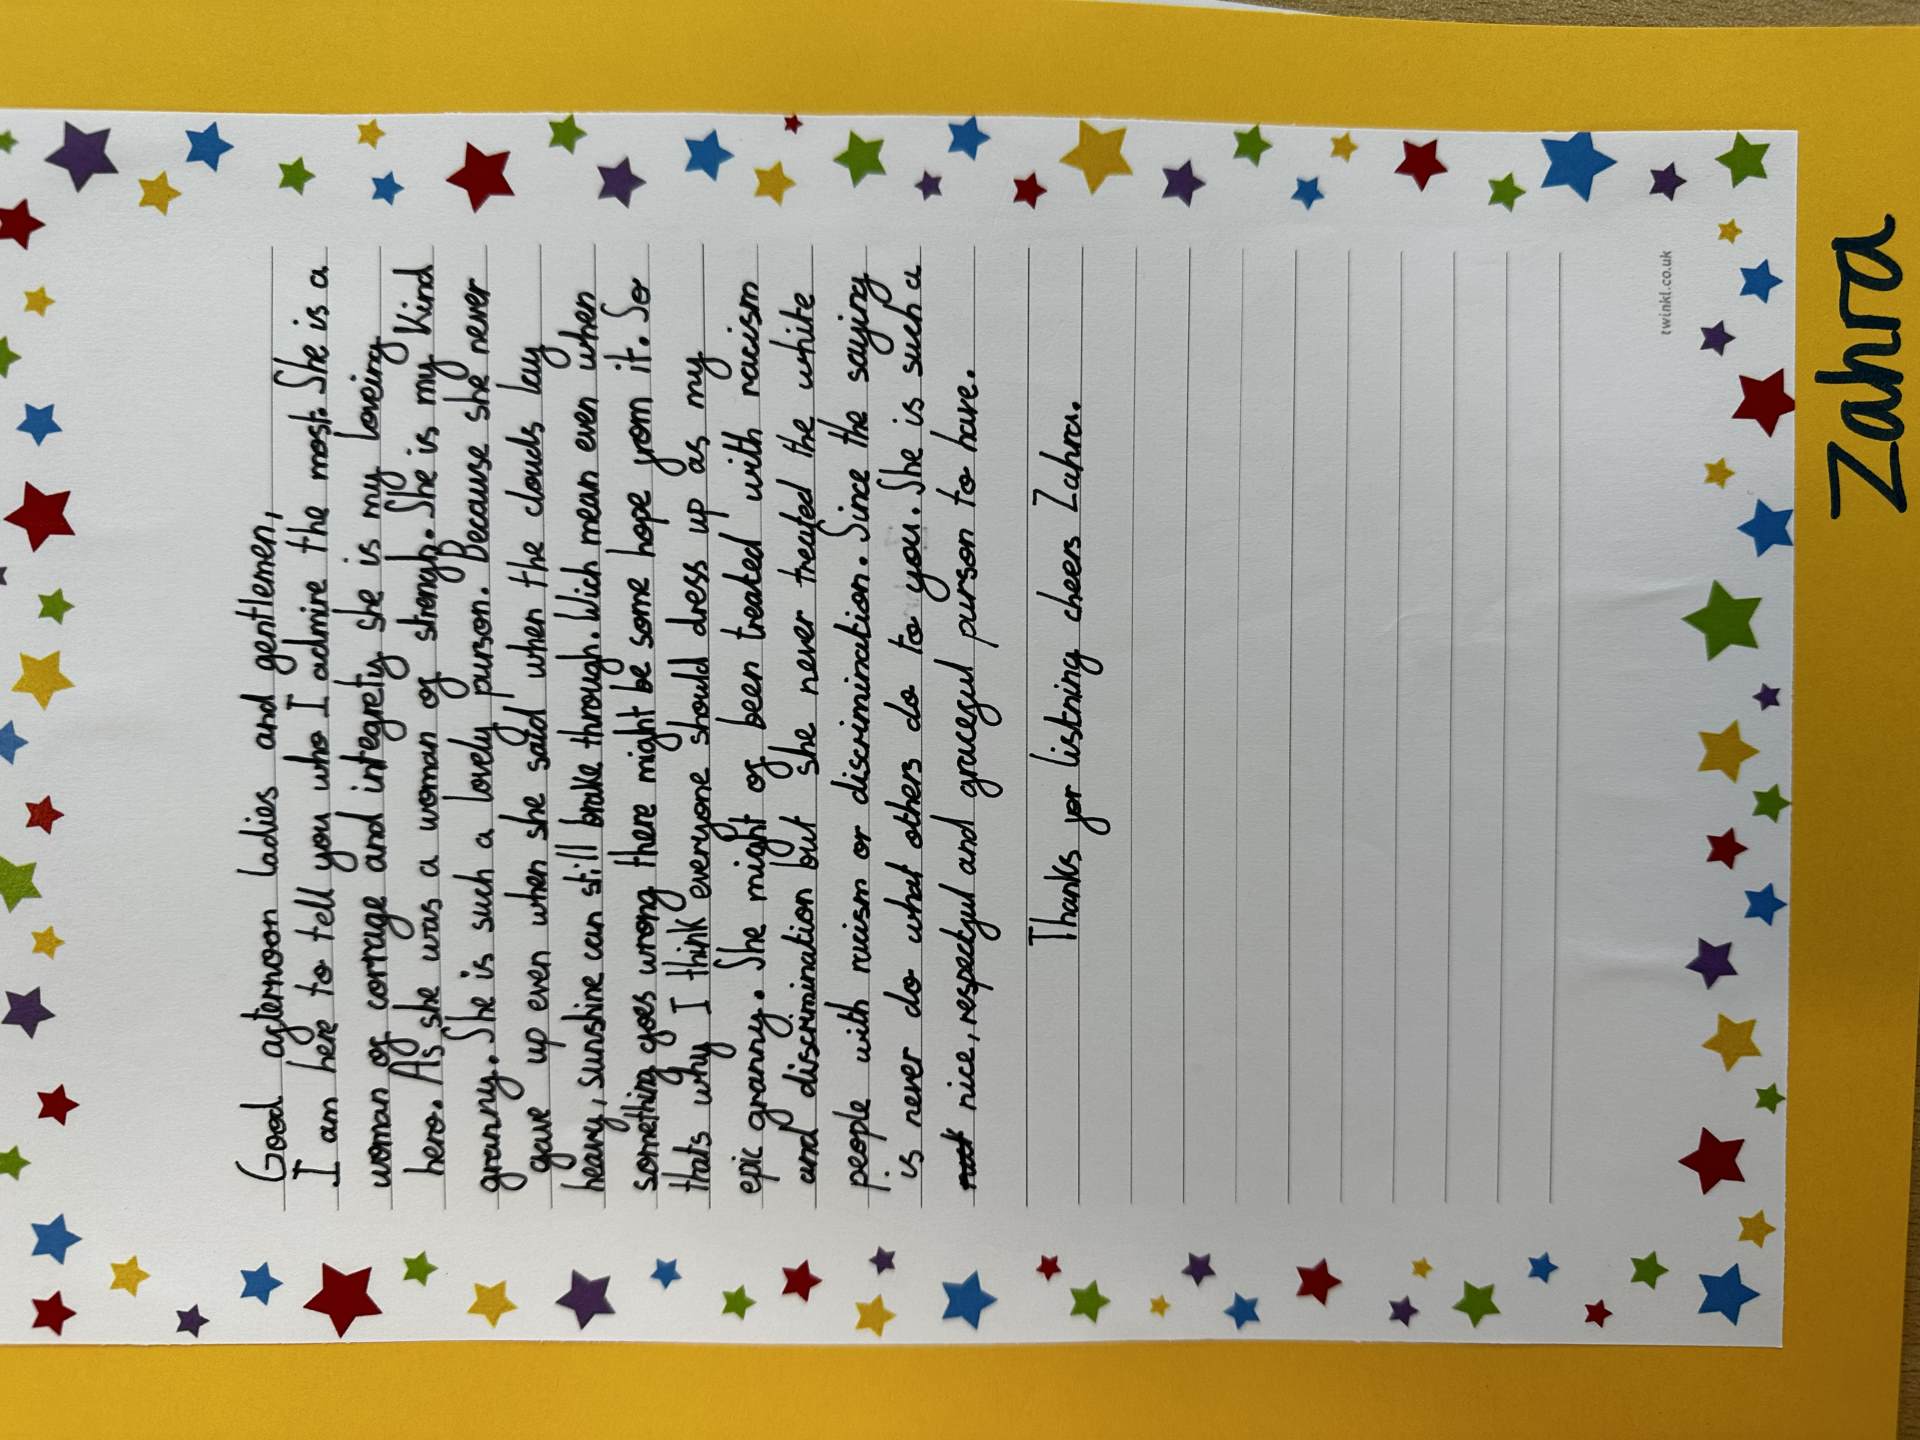 Good afternoon ladies and gentlemen,
I am here to tell you who I admire the most. She is a
woman of corrage and integrety she is my loveing
hero. As she was a woman of strengh. She is my kind
granny. She is such a lovely purson. Because she never
gave up even when she said when the clouds lay
heavy, sunshine can still brake through. Wich mean even when
something goes wrong there might be some hope from it. So
thats why I think everyone should dress up as my
epic granny. She might of been treated with racism
and discrimination but she never treated the white
people with racism or discrimination. Since the saying
is never do what others do to you. She is such a
nice, respectful and graceful purson to have.
Thanks for listning cheers Zahra.
twinkl.co.uk
Zahra